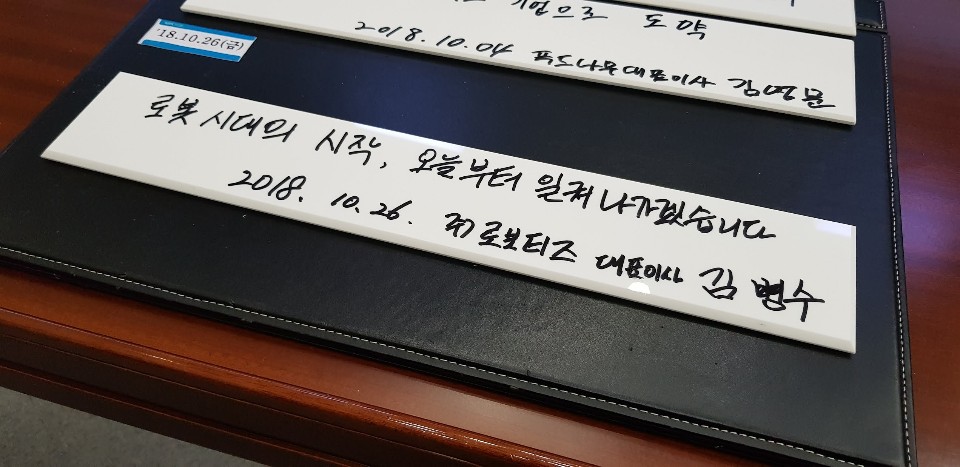 기업으로 도약
2018.10.04 푸드나무대표이사 김영문
'18.10.26(금)
로봇시대의 시작, 오늘부터 일궈나가겠습니다
2018. 10. 26. ㈜로보티즈 대표이사 김병수